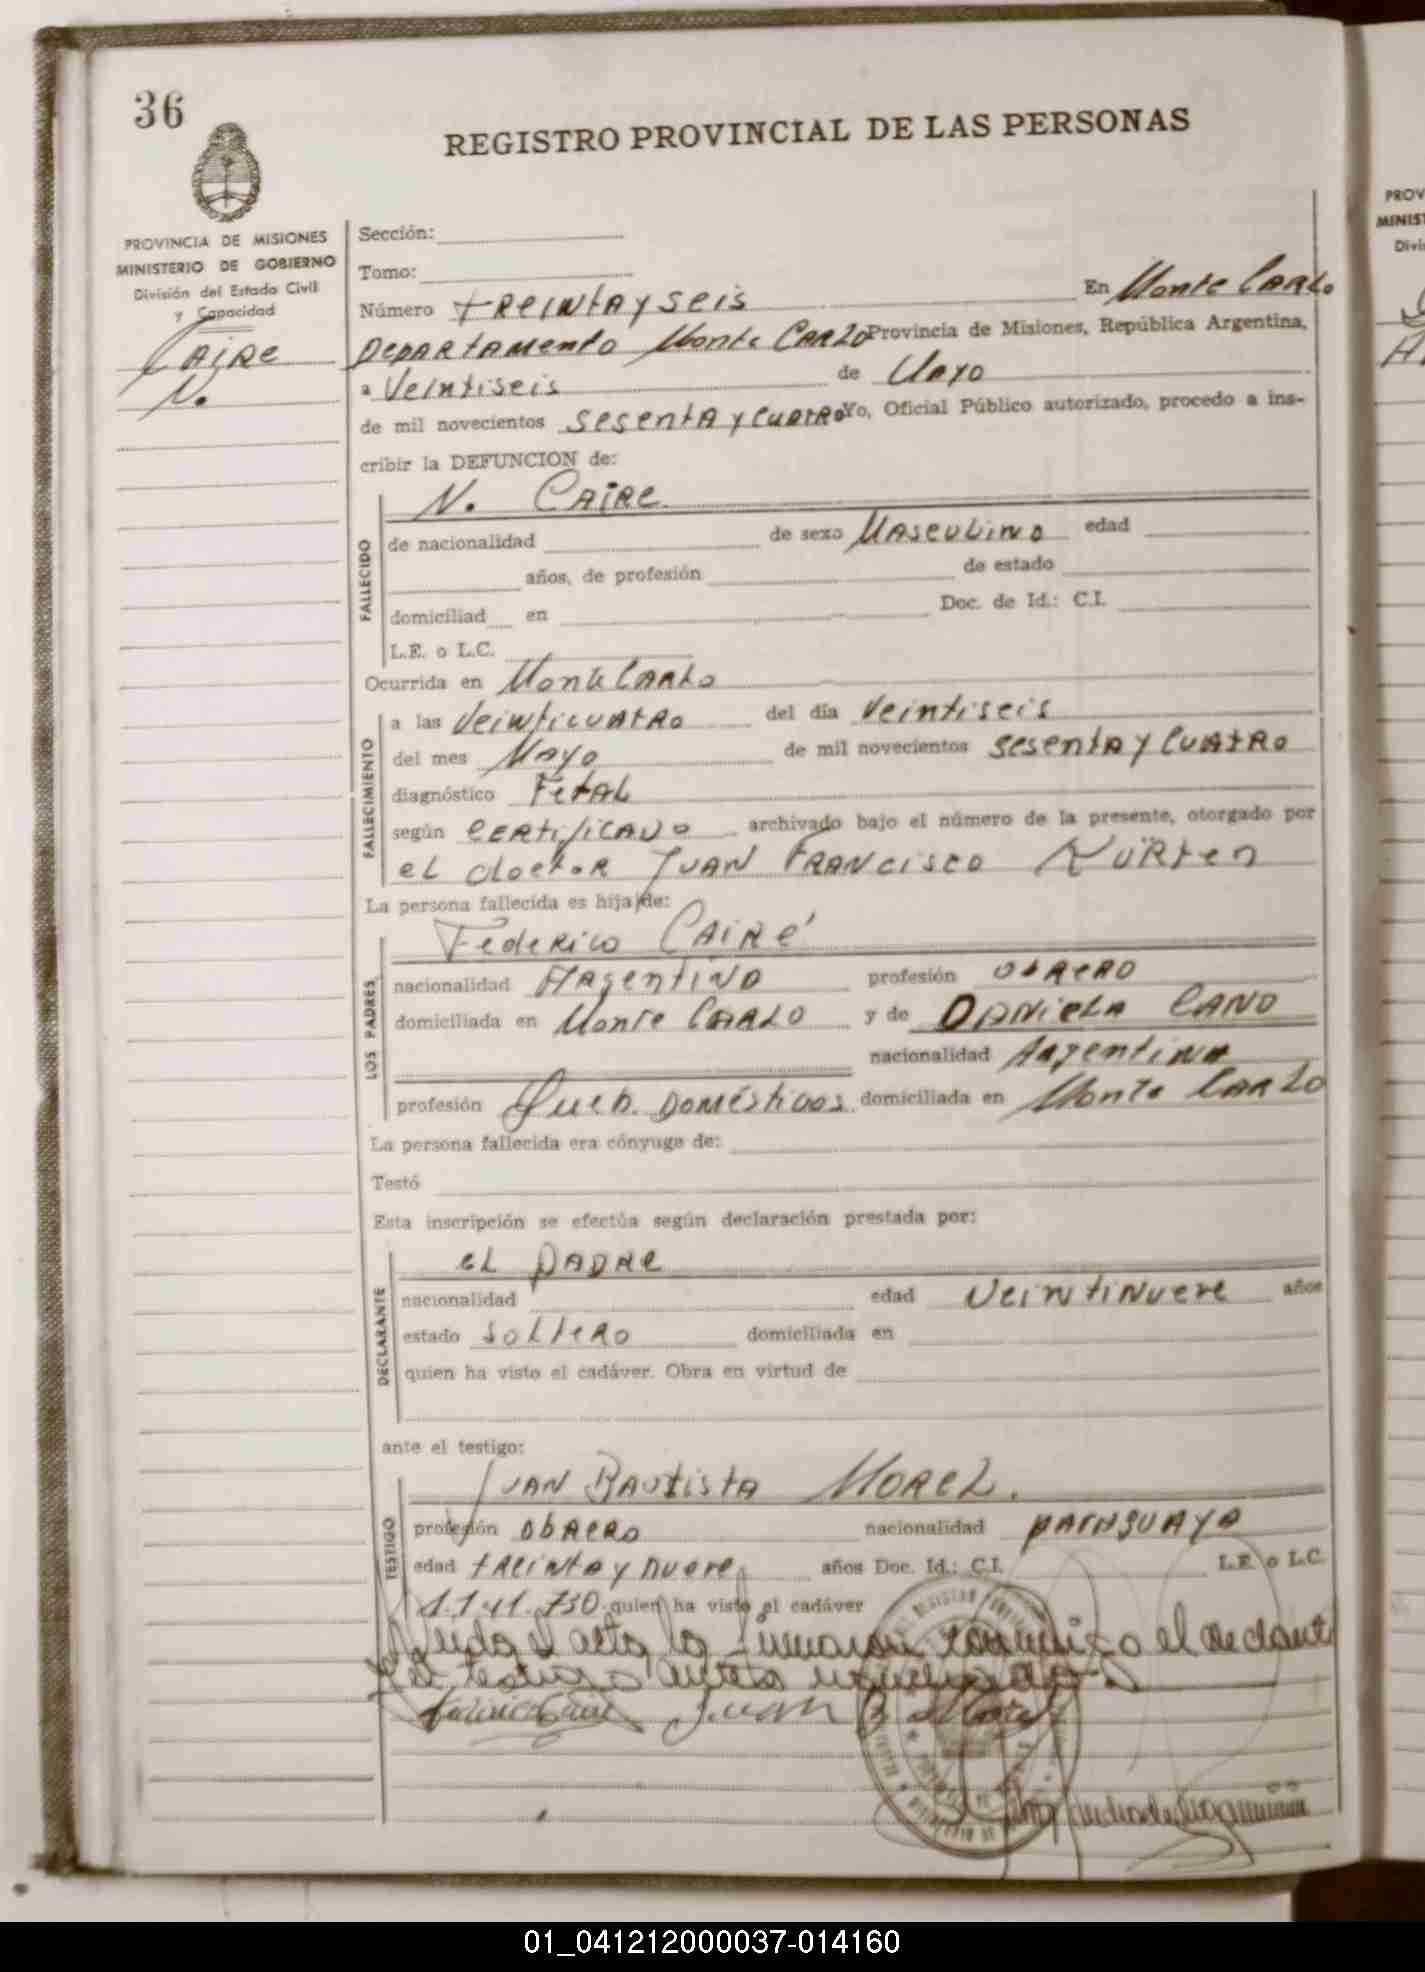 36
REGISTRO PROVINCIAL DE LAS PERSONAS
PROVINCIA DE MISIONES
MINISTERIO DE GOBIERNO
División del Estado Civil
y Capacidad
CAIRE
N.
Sección:
Tomo:
Número treinta y seis En Monte Carlo
Departamento Monte Carlo Provincia de Misiones, República Argentina,
a Veintiseis de Mayo
de mil novecientos sesenta y cuatro Yo, Oficial Público autorizado, procedo a ins-
cribir la DEFUNCION de:
N. Caire
FALLECIDO
de nacionalidad de sexo Masculino edad
años, de profesión de estado
domiciliad en Doc. de Id.: C.I.
L.E. o L.C.
Ocurrida en Monte Carlo
FALLECIMIENTO
a las veinticuatro del día veintiseis
del mes Mayo de mil novecientos sesenta y cuatro
diagnóstico Fetal
según certificado archivado bajo el número de la presente, otorgado por
el doctor Juan Francisco Kürten
La persona fallecida es hija de:
LOS PADRES
Federico Cairé
nacionalidad Argentino profesión obrero
domiciliada en Monte Carlo y de Daniela Cano
nacionalidad Argentina
profesión Queh. Domésticos domiciliada en Monte Carlo
La persona fallecida era cónyuge de:
Testó
Esta inscripción se efectúa según declaración prestada por:
DECLARANTE
el padre
nacionalidad edad veintinueve años
estado soltero domiciliada en
quien ha visto el cadáver. Obra en virtud de
ante el testigo:
TESTIGO
Juan Bautista Morel.
profesión obrero nacionalidad paraguaya
edad treinta y nueve años Doc. Id.: C.I. L.E. o L.C.
1.141.730 quien ha visto el cadáver
el acta, la conmigo el
testigo antes
Juan B Morel
01_041212000037-014160